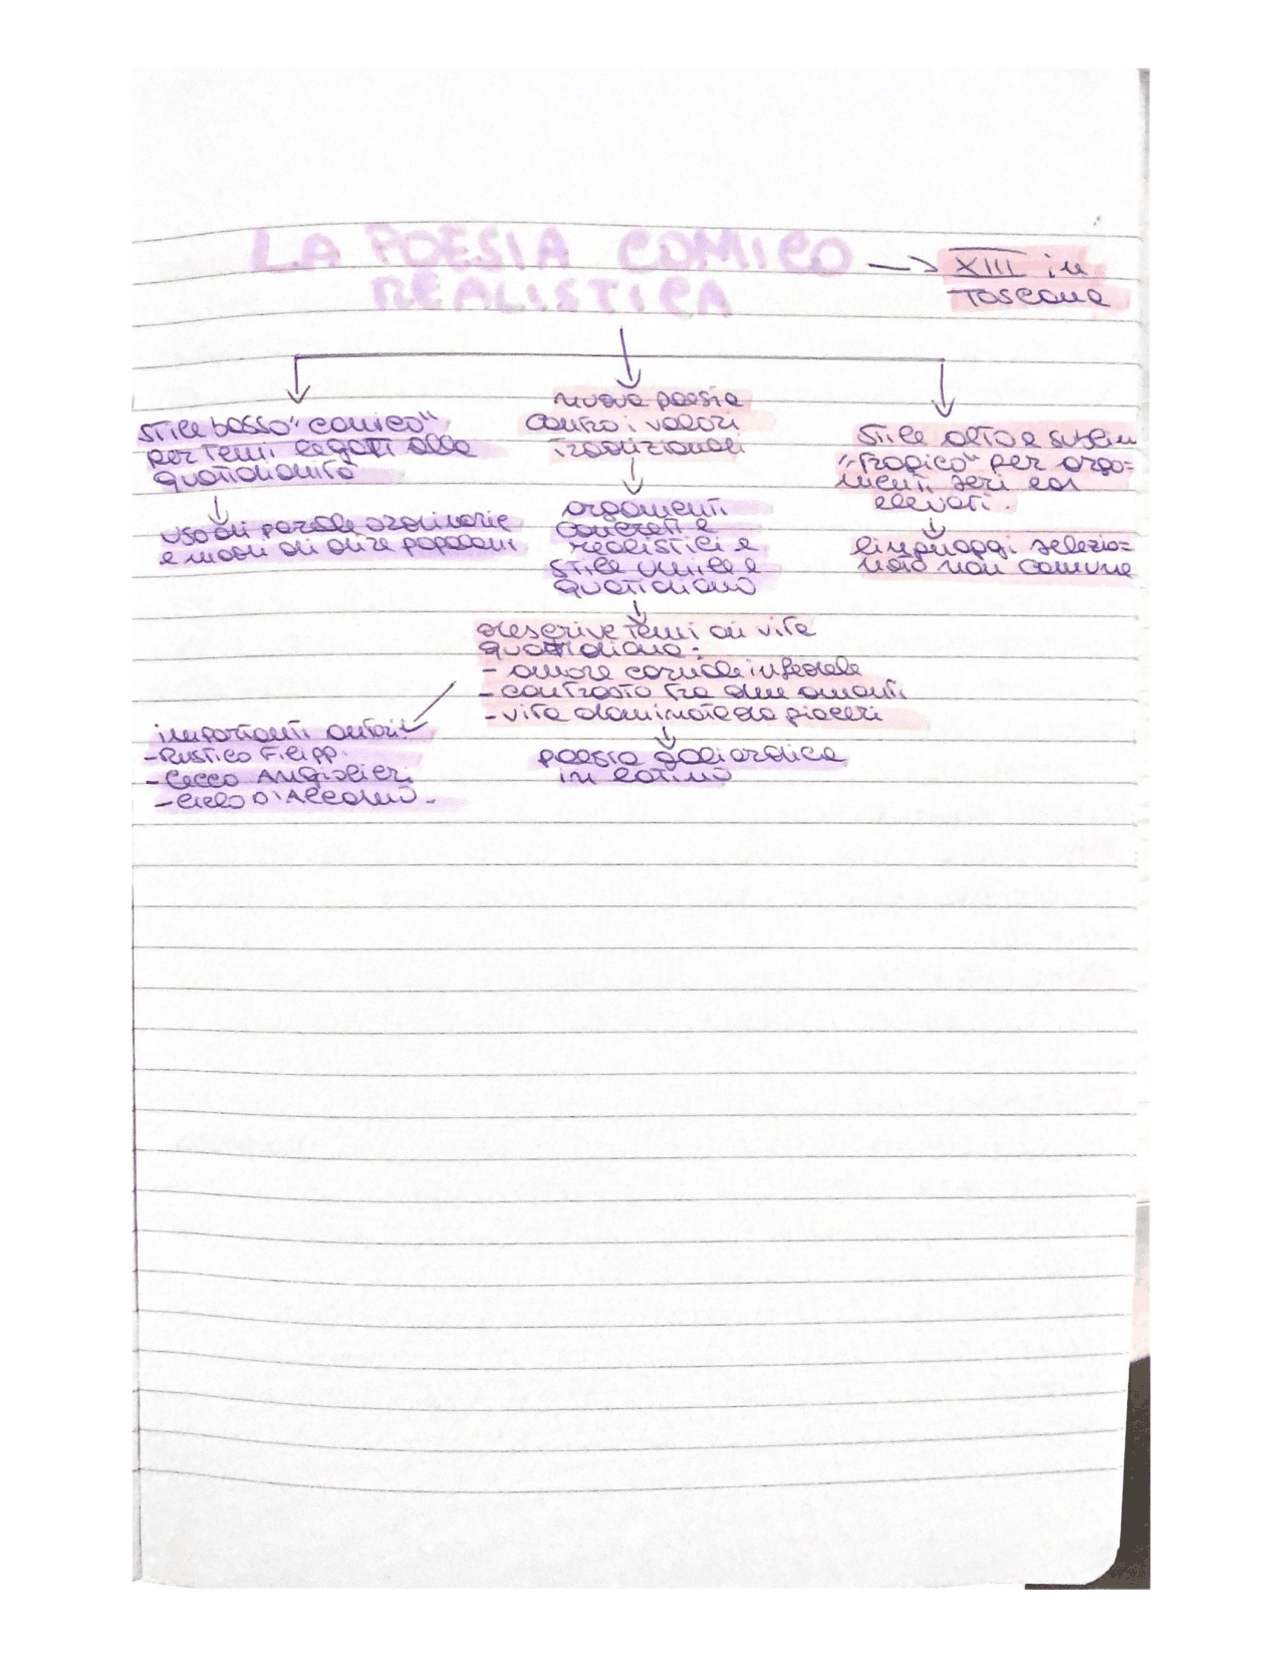 LA POESIA COMICO
REALISTICA
—> XIII in
Toscana
stile basso "comico"
per temi legati alla
quotidianità
uso di parole ordinarie
e modi di dire popolari
nuova poesia
contro i valori
tradizionali
argomenti
concreti e
realistici e
stile umile e
quotidiano
descrive temi di vita
quotidiana:
- amore carnale infedele
- contrasto tra due amanti
- vita dominata da piaceri
poesia goliardica
in latino
importanti autori
- Rustico Filipp.
- Cecco Angiolieri
- Cielo D'Alcamo.
stile alto e sublim
"tragico" per argo=
menti seri ed
elevati.
linguaggi selezio=
nato non comune